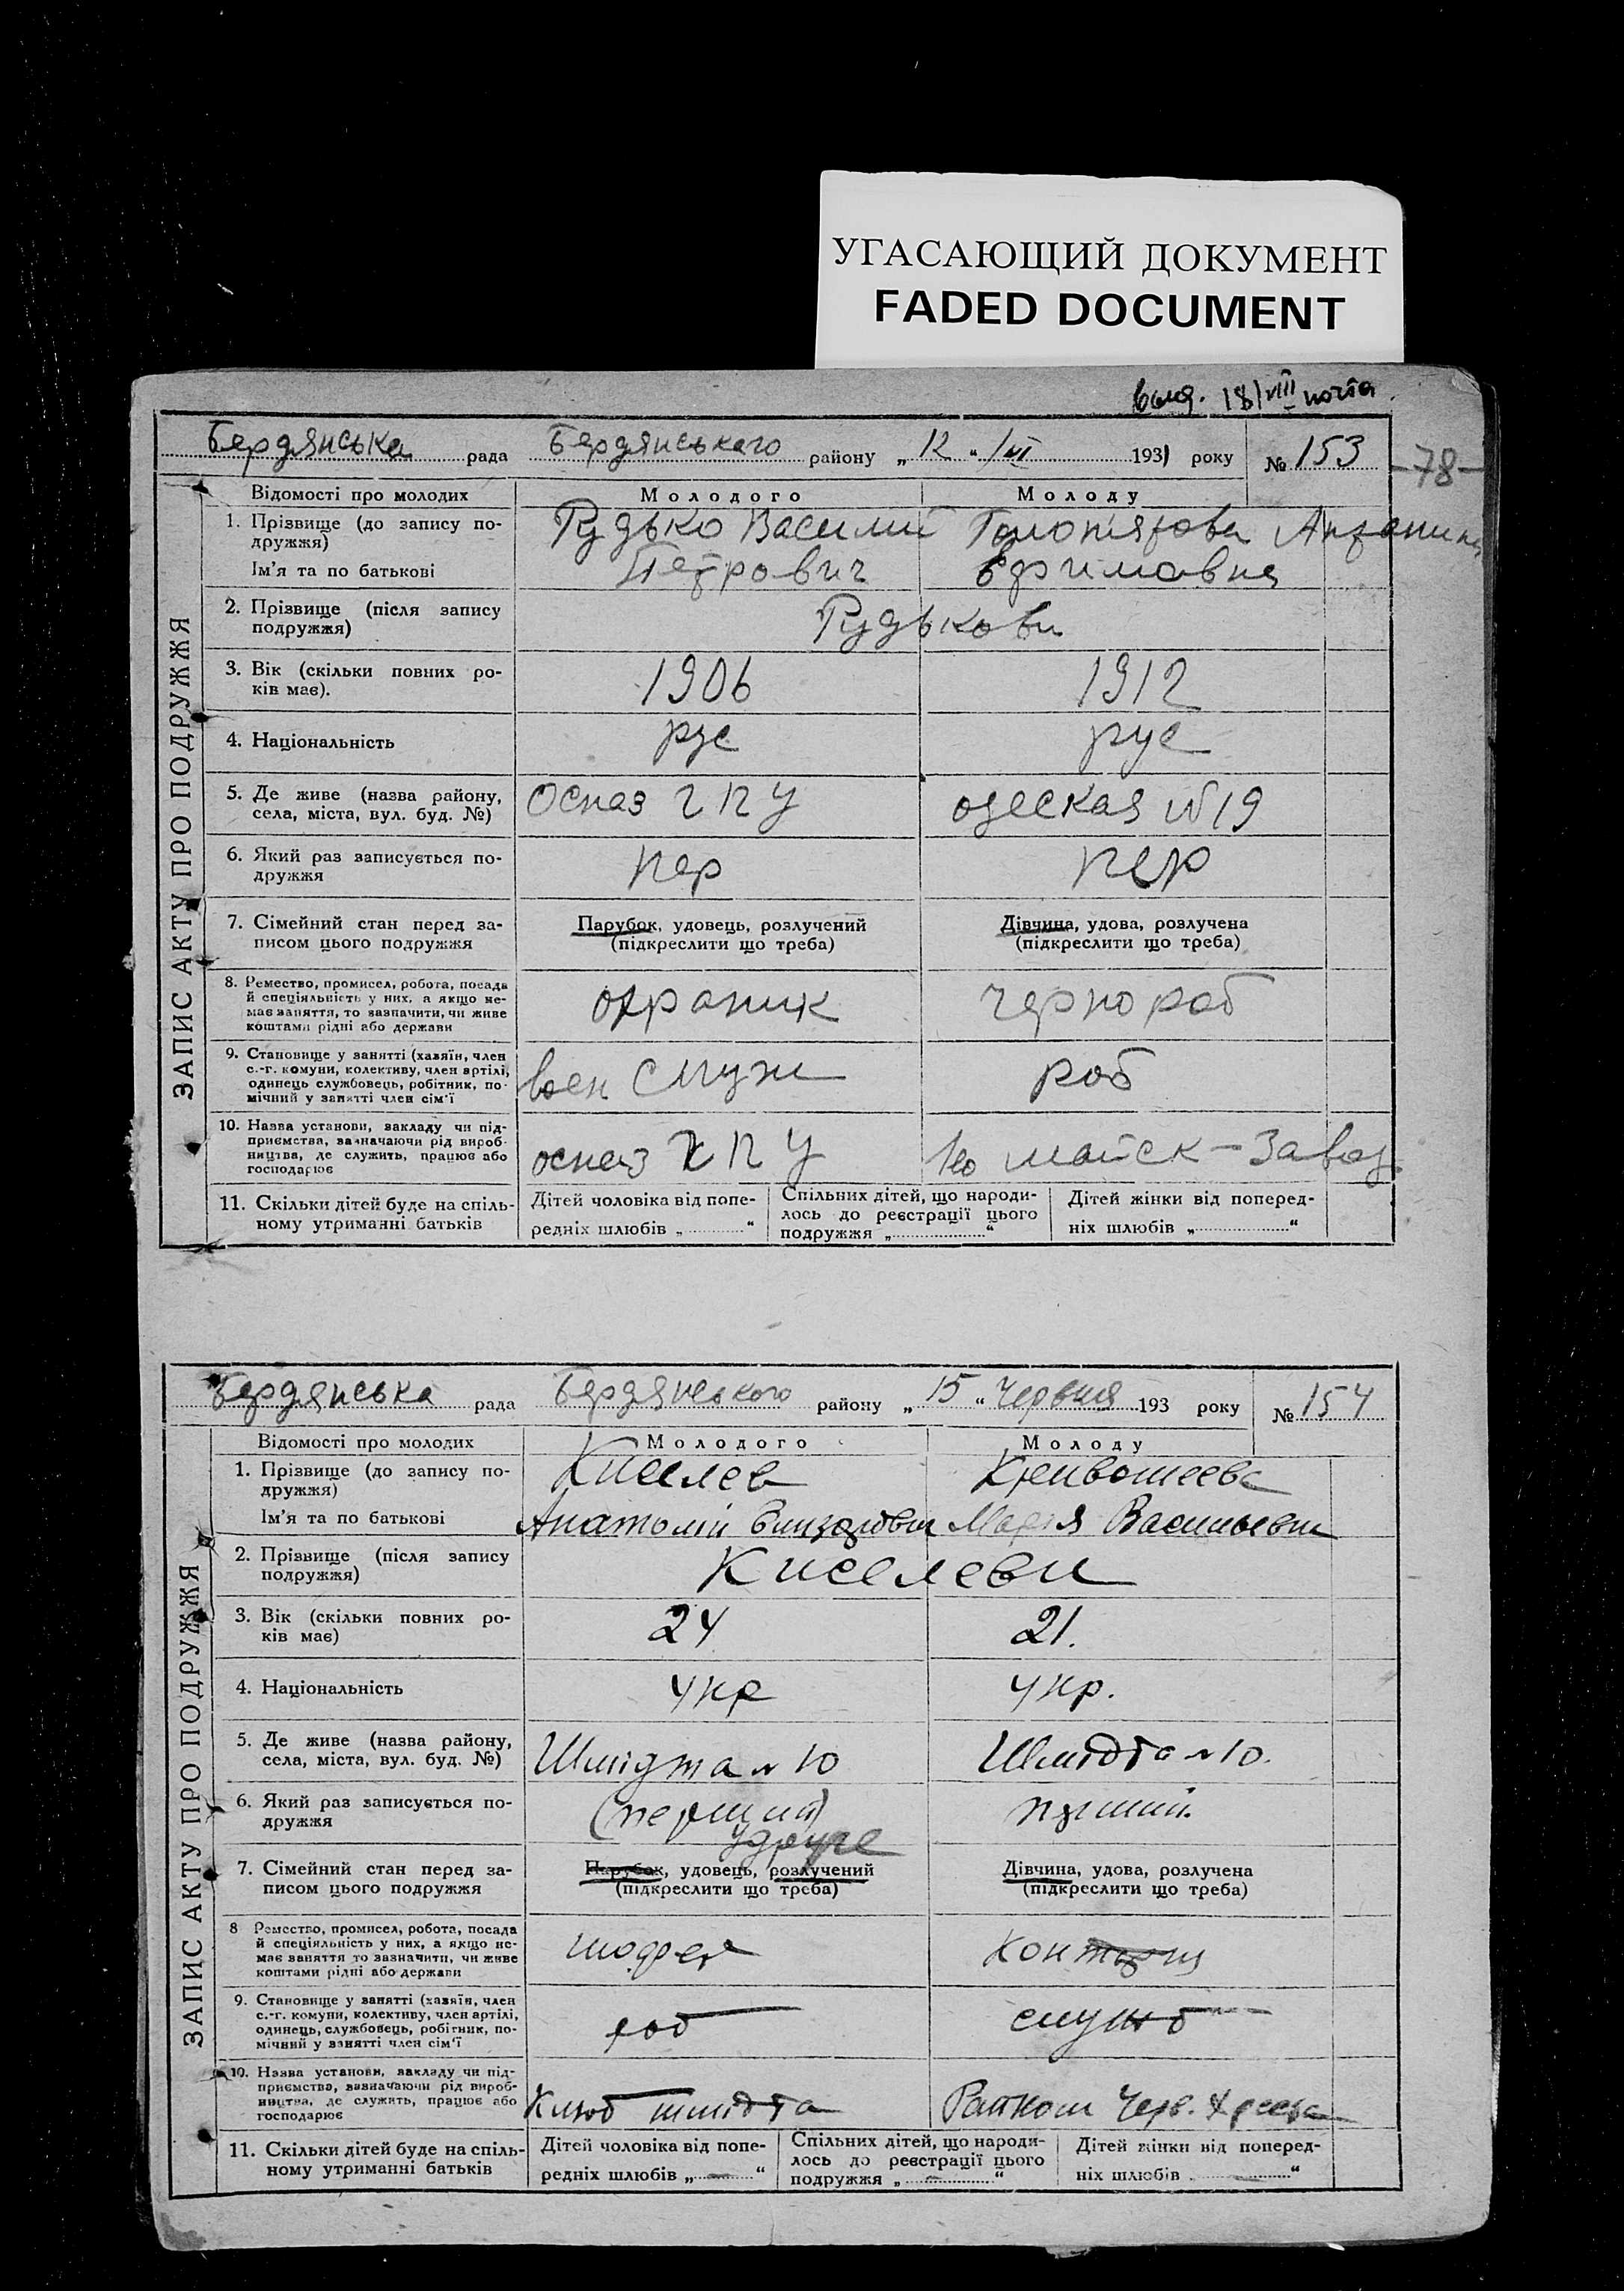 УГАСАЮЩИЙ ДОКУМЕНТ
FADED DOCUMENT
18/VIII почта
Бердянська рада Бердянського району „12 “ /VI 1931 року № 153
-78-
ЗАПИС АКТУ ПРО ПОДРУЖЖЯ
Відомості про молодих Молодого Молоду
1. Прізвище (до запису по-
дружжя)
Рудько Василий
Ім'я та по батькові Петрович Ефимовна
2. Прізвище (після запису
подружжя)
Рудькови
3. Вік (скільки повних ро-
ків має).
1906 1912
4. Національність рус рус
5. Де живе (назва району,
села, міста, вул. буд. №)
Осназ ГПУ одеская №19
6. Який раз записується по-
дружжя
пер пер
7. Сімейний стан перед за-
писом цього подружжя
Парубок, удовець, розлучений
(підкреслити що треба)
Дівчина, удова, розлучена
(підкреслити що треба)
8. Ремество, промисел, робота, посада
й спеціяльність у них, а якщо не-
має заняття, то зазначити, чи живе
коштами рідні або держави
охраник чернораб
9. Становище у занятті (хазяїн, член
с.-г. комуни, колективу, член артілі,
одинець службовець, робітник, по-
мічний у занятті член сім'ї
воен служ роб
10. Назва установи, закладу чи під-
приємства, зазначаючи рід вироб-
ництва, де служить, працює або
господарює
осназ ГПУ 1го майск-завод
11. Скільки дітей буде на спіль-
ному утриманні батьків
Дітей чоловіка від попе-
редніх шлюбів „ “
Спільних дітей, що народи-
лось до реєстрації цього
подружжя „ “
Дітей жінки від поперед-
ніх шлюбів „ “
Бердянська рада Бердянського району „15 “ Червня 193 року № 154
ЗАПИС АКТУ ПРО ПОДРУЖЖЯ
Відомості про молодих Молодого Молоду
1. Прізвище (до запису по-
дружжя)
Киселев Кривошеева
Ім'я та по батькові Анатолій Мария Васильевн
2. Прізвище (після запису
подружжя)
Киселеви
3. Вік (скільки повних ро-
ків має)
24 21.
4. Національність укр укр.
5. Де живе (назва району,
села, міста, вул. буд. №)
Шмідта № 10 Шмідта № 10.
6. Який раз записується по-
дружжя
(перший)
удруге
перший.
7. Сімейний стан перед за-
писом цього подружжя
Парубок, удовець, розлучений
(підкреслити що треба)
Дівчина, удова, розлучена
(підкреслити що треба)
8 Ремество, промисел, робота, посада
й спеціяльність у них, а якщо не-
має заняття то зазначити, чи живе
коштами рідні або держави
шофер
9. Становище у занятті (хазяїн, член
с.-г. комуни, колективу, член артілі,
одинець, службовець, робітник, по-
мічний у занятті член сім'ї
роб служб
10. Назва установи, закладу чи під-
приємства, зазначаючи рід вироб-
ництва, де служить, працює або
господарює
Клюб шмідта Райком Черв. Хреста
11. Скільки дітей буде на спіль-
ному утриманні батьків
Дітей чоловіка від попе-
редніх шлюбів „ — “
Спільних дітей, що народи-
лось до реєстрації цього
подружжя „ — “
Дітей жінки від поперед-
ніх шлюбів „ — “